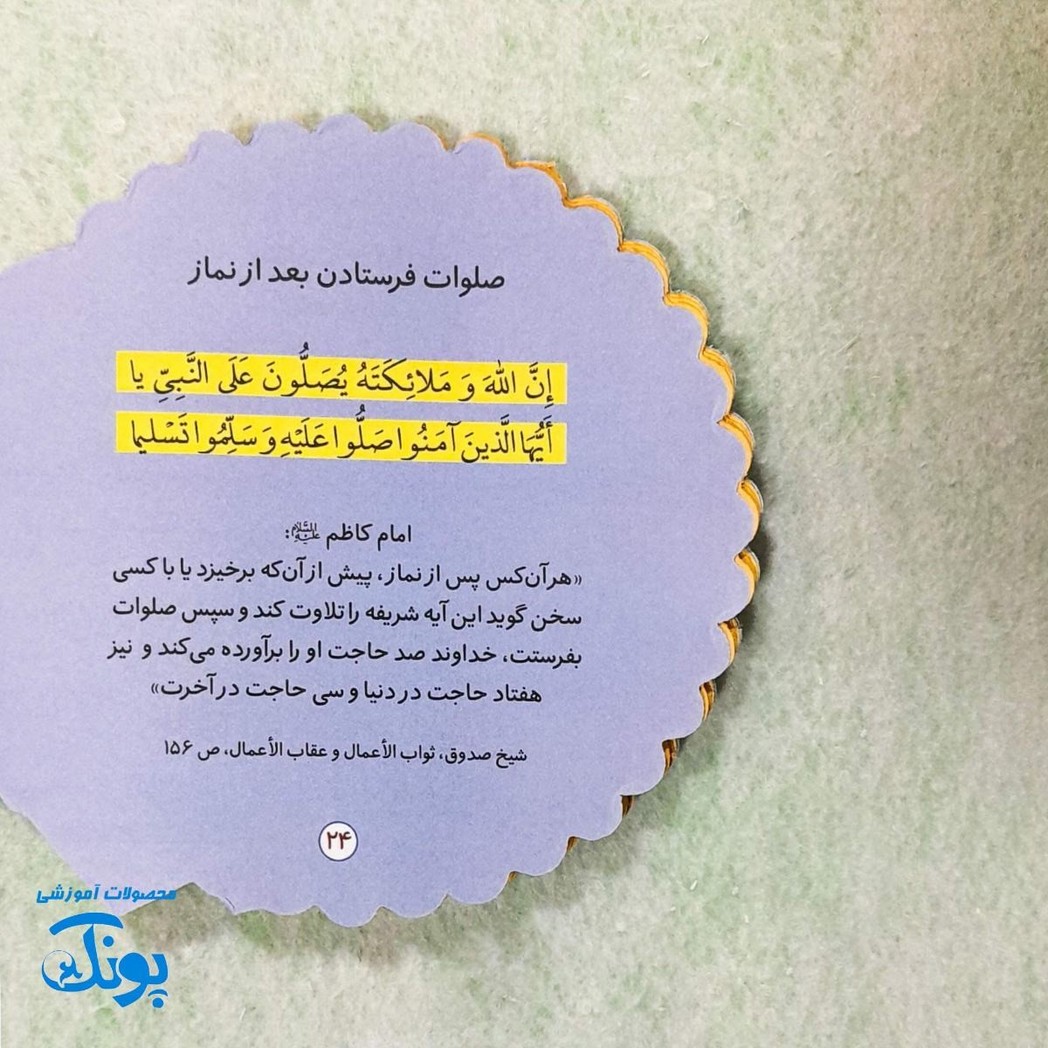 صلوات فرستادن بعد از نماز
إِنَّ اللّٰهَ وَ مَلائِكَتَهُ يُصَلُّونَ عَلَى النَّبِيِّ يا
أَيُّهَا الَّذينَ آمَنُوا صَلُّوا عَلَيْهِ وَ سَلِّمُوا تَسْليما
امام کاظم عَلَيْهِ السَّلام:
«هر آن‌کس پس از نماز، پیش از آن‌که برخیزد یا با کسی
سخن گوید این آیه شریفه را تلاوت کند و سپس صلوات
بفرستت، خداوند صد حاجت او را برآورده می‌کند و نیز
هفتاد حاجت در دنیا و سی حاجت در آخرت»
شیخ صدوق، ثواب الأعمال و عقاب الأعمال، ص ۱۵۶
۲۴
محصولات آموزشی
پونک